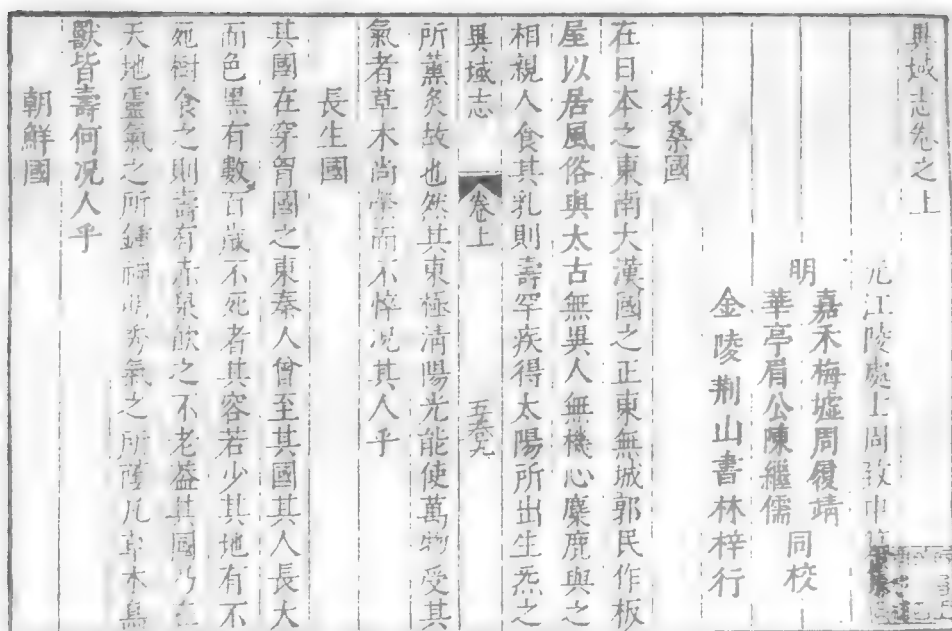 異域志卷之上
元江陵處士周致中
明
嘉禾梅墟周履靖
華亭眉公陳繼儒
同校
金陵荆山書林梓行
扶桑國
在日本之東南大漢國之正東無城郭民作板
屋以居風俗與太古無異人無機心麋鹿與之
相親人食其乳則壽罕疾得太陽所出生炁之
異域志
卷上
所薰炙故也然其東極清陽光能使萬物受其
氣者草木尚榮而不悴况其人乎
長生國
其國在穿胷國之東秦人曾至其國其人長大
而色黑有數百歲不死者其容若少其地有不
死樹食之則壽有赤泉飲之不老益其國乃在
天地靈氣之所鍾神明秀氣之所蔭凡草木鳥
獸皆壽何况人乎
朝鮮國